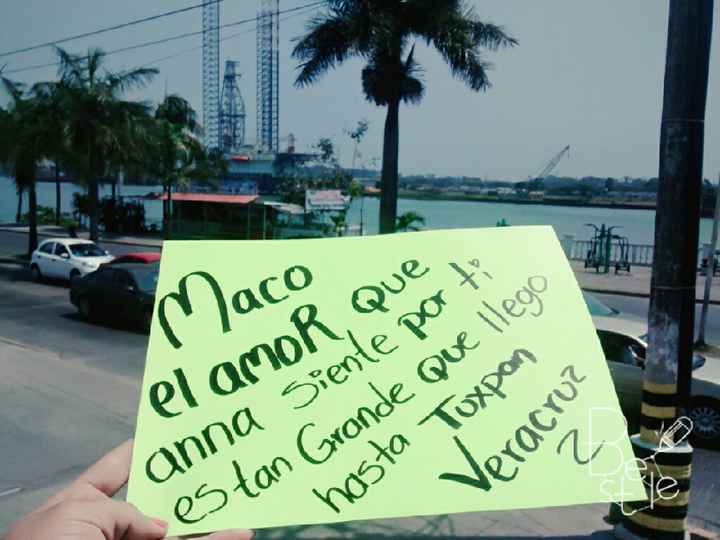 Maco
el amoR que
anna siente por ti
es tan Grande que llego
hasta Tuxpan
Veracruz